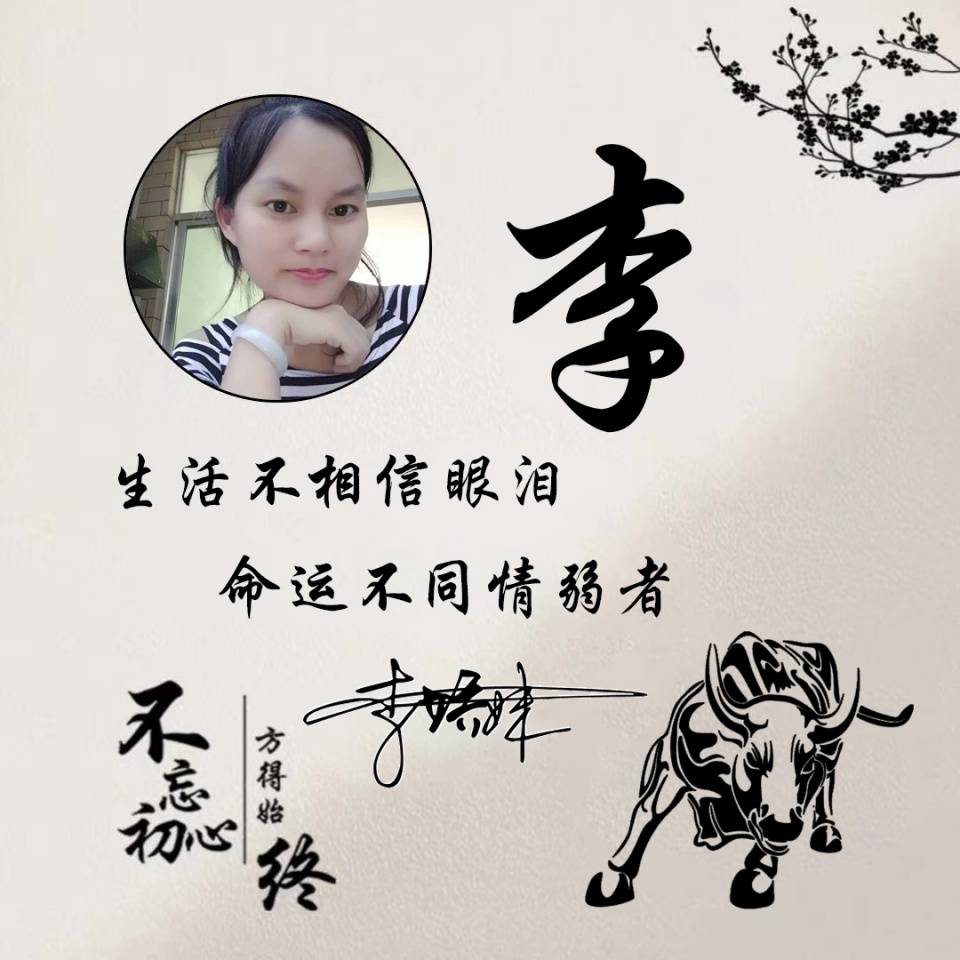 李
生活不相信眼泪
命运不同情弱者
李娇妹
不忘初心
方得始终